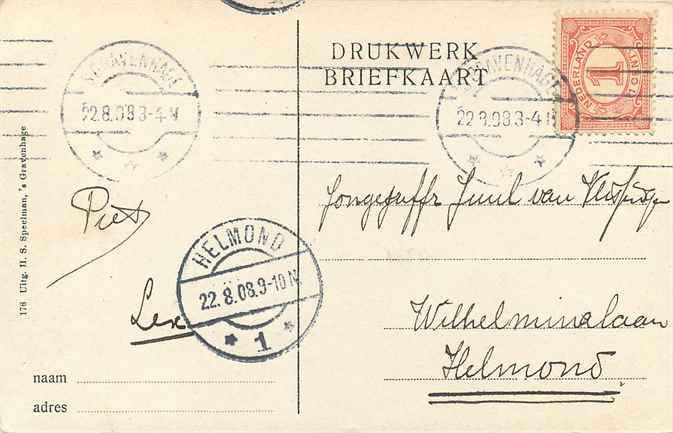 DRUKWERK
BRIEFKAART
'S GRAVENHAGE
22.8.08 3-4 N
'S GRAVENHAGE
22.8.08 3-4 N
NEDERLAND
1
CENT
176 Uitg. H. S. Speelman, 's Gravenhage
Piet
Lex
HELMOND
22.8.08.9-10 N
1
naam
adres
Jongejuffr Juul van
Wilhelminalaan
Helmond